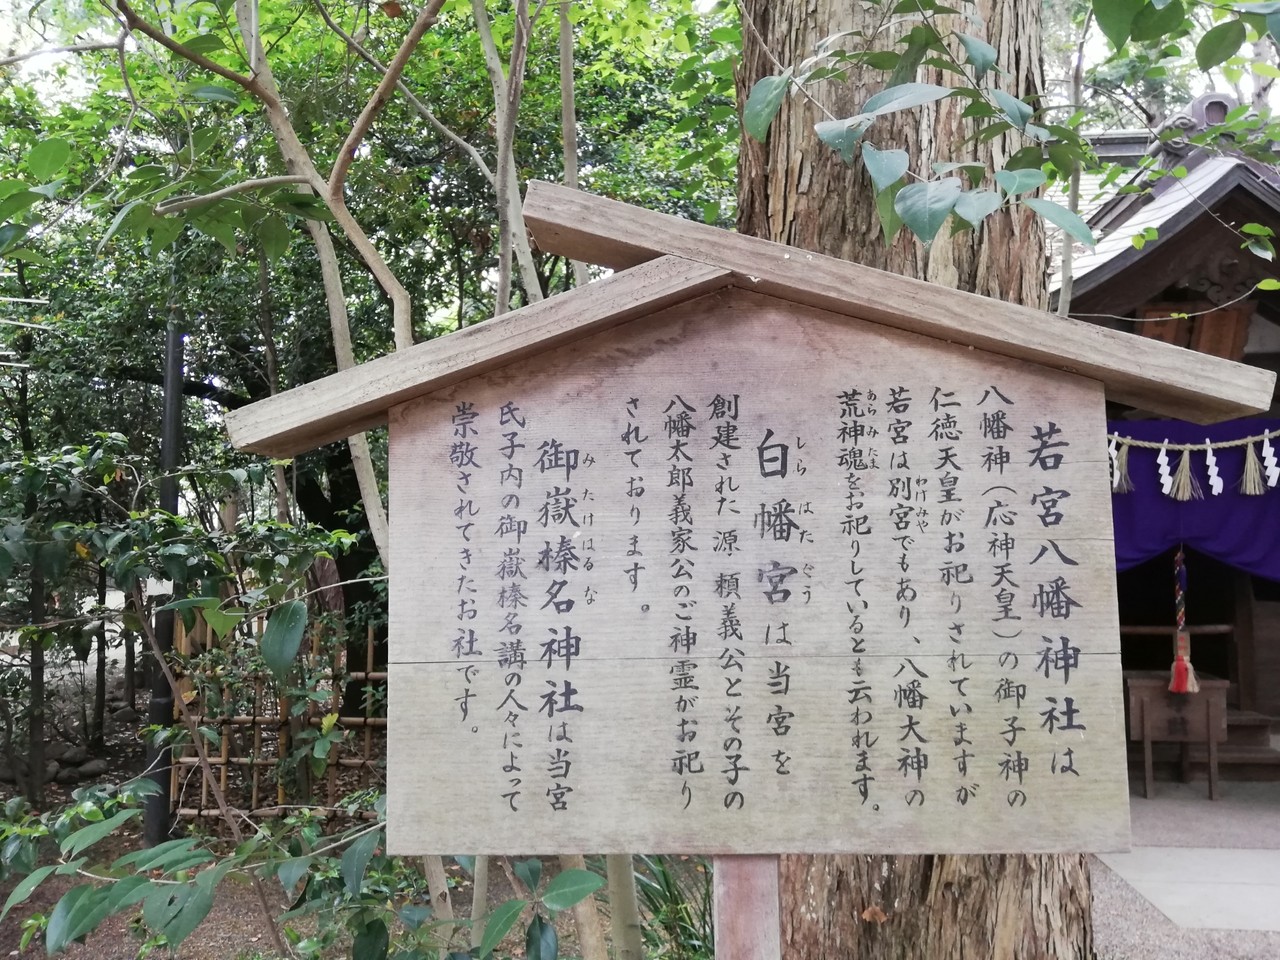 若宮八幡神社は
八幡神（応神天皇）の御子神の
仁徳天皇がお祀りされていますが
若宮は別宮でもあり、八幡大神の
わけみや
荒神魂をお祀りしているとも云われます。
あらみたま
白幡宮は当宮を
しらはたぐう
創建された源頼義公とその子の
八幡太郎義家公のご神霊がお祀り
されております。
御嶽榛名神社は当宮
みたけはるな
氏子内の御嶽榛名講の人々によって
崇敬されてきたお社です。